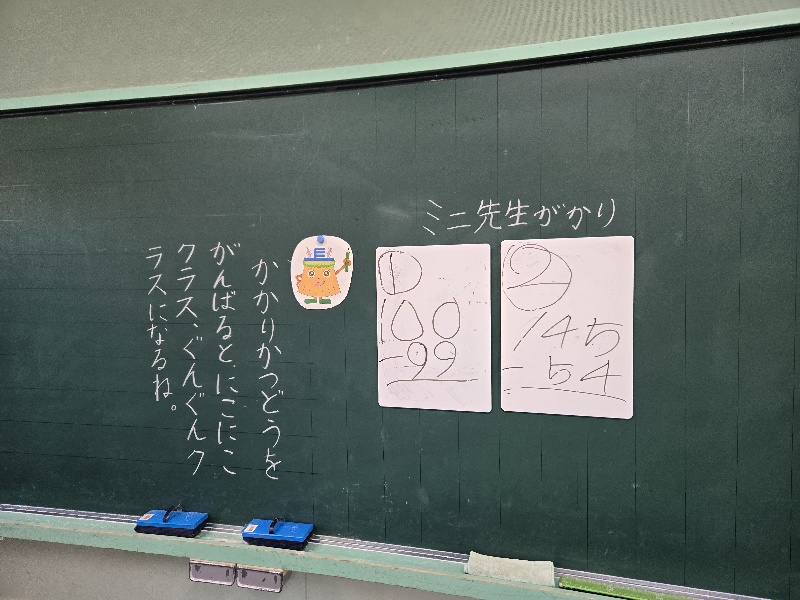 ミニ先生がかり
①
100
-99
②
145
-54
かかりかつどうを
がんばると、にこにこ
クラス、ぐんぐんク
ラスになるね。